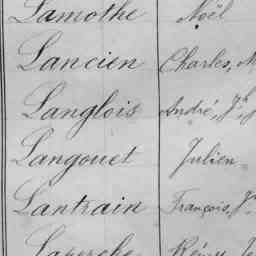 Lamothe Noël
Lancien Charles, M
Langlois André, Jh
Langouet Julien
Lantrain François, J
Laperche Rémy